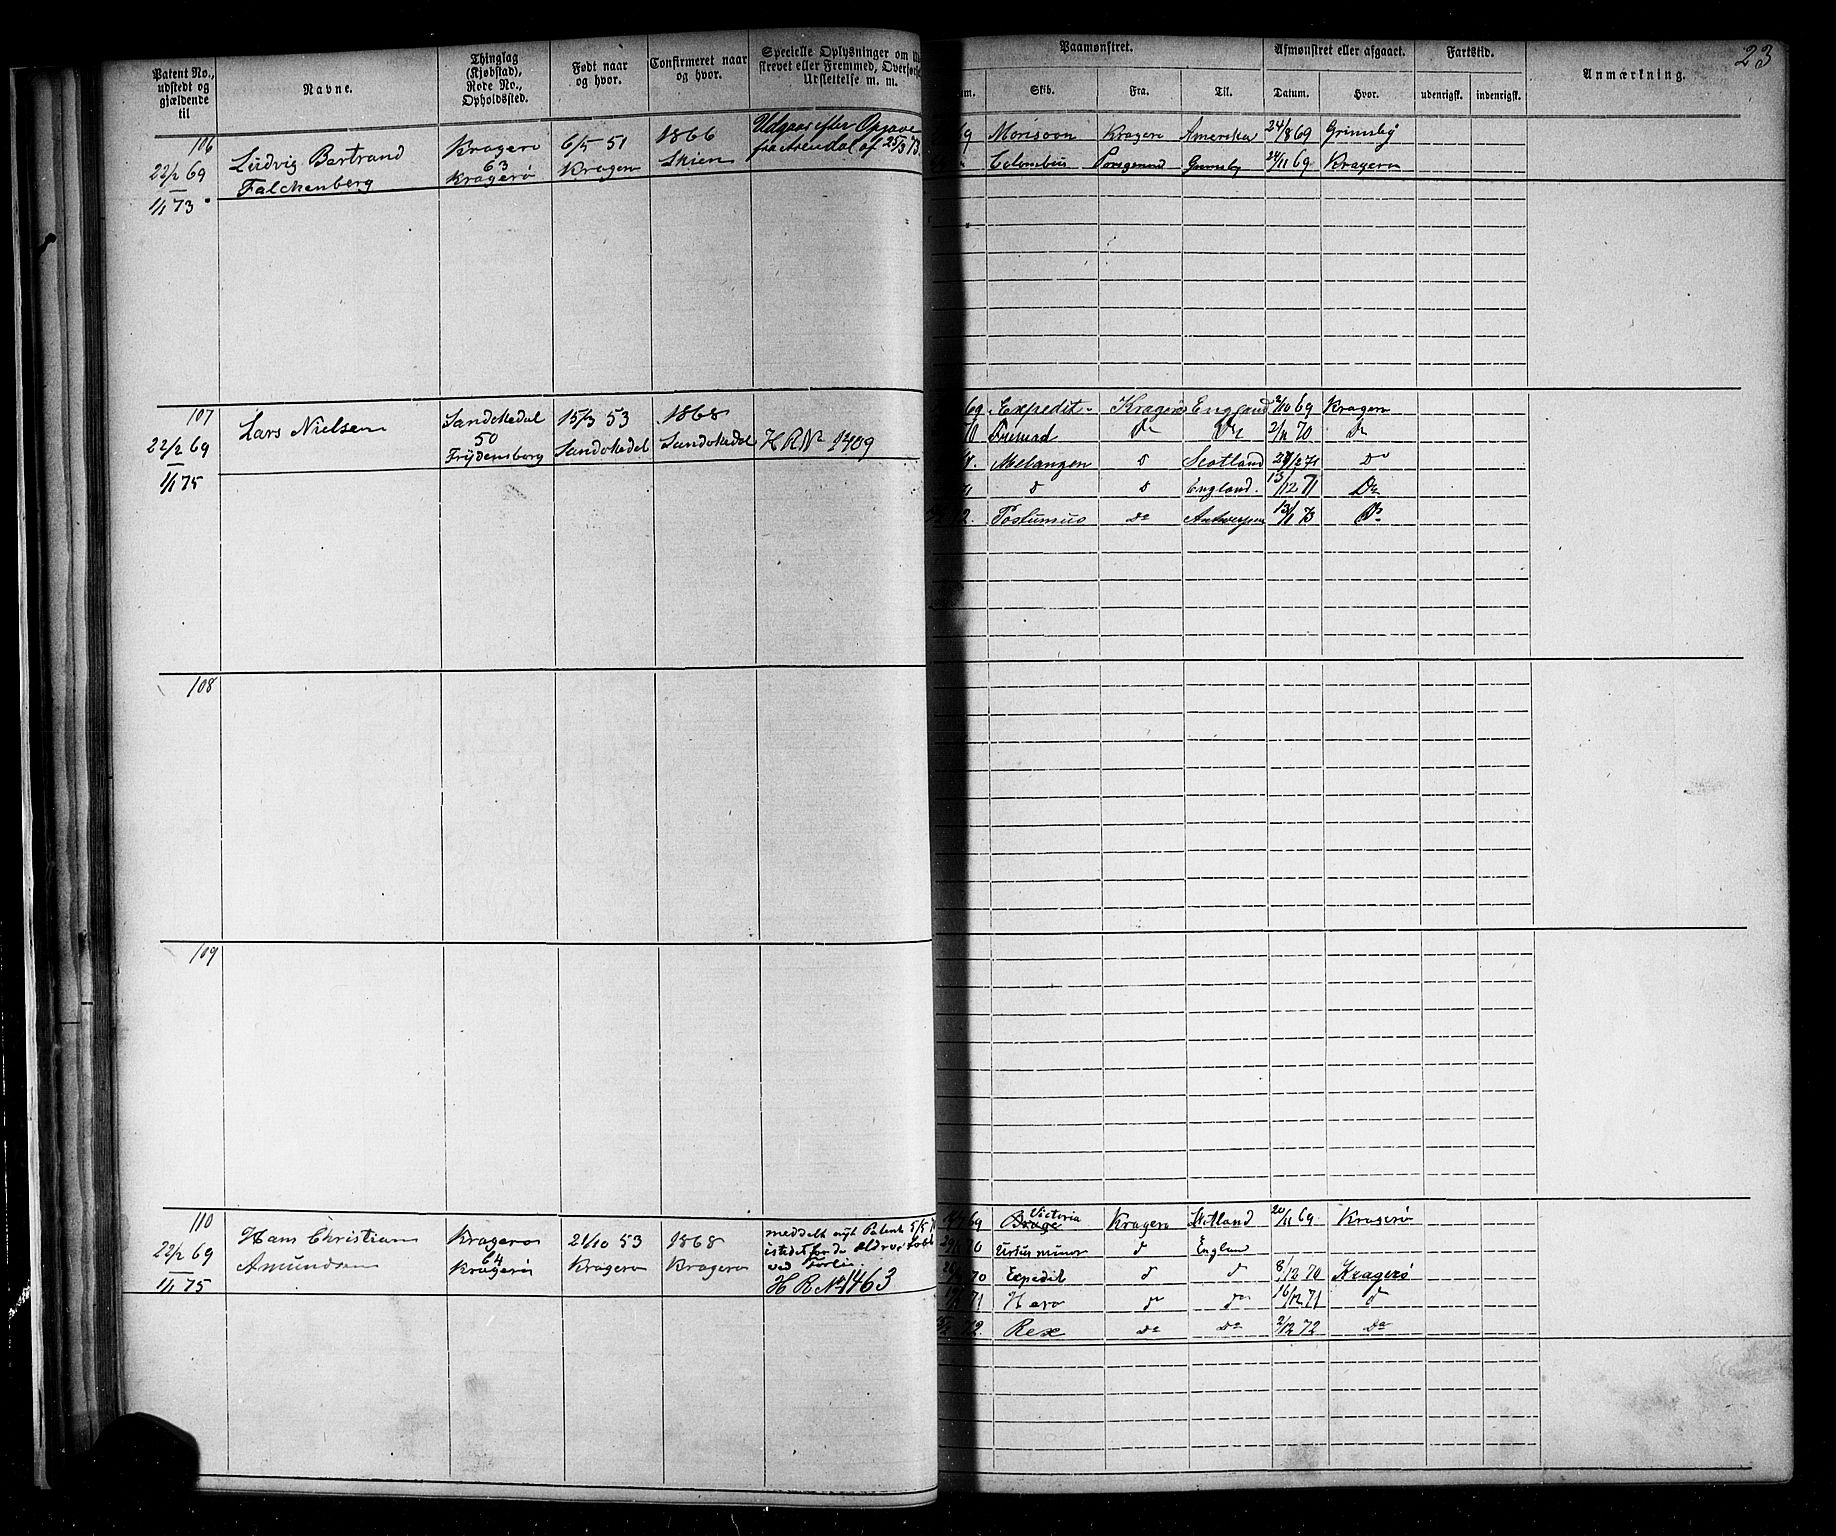 23
Patent No., udstedt og gjældende til
Navne.
Thinglag (Kjøbstad), Rode No., Opholdssted.
Født naar og hvor.
Confirmeret naar og hvor.
Specielle Oplysninger om
skrevet eller Fremmed, Overført
Udslettelse m. m.
Paamønstret.
Skib.
Fra.
Til.
Afmønstret eller afgaaet.
Datum.
Hvor.
Fartstid.
udenrigsk.
indenrigsk.
Anmærkning.
106
22/2 69
1/1 73
Ludvig Bertrand
Falckenberg
Kragerø
63
Kragerø
6/5 51
Kragerø
1866
Skien
Udgaar efter Opgave
fra Arendal af 25/3 73.
69 Morisoon Kragerø Amerika 24/8 69 Grimsby
Colombus Porsgrund Grimsby 24/11 69 Kragerø
107
22/2 69
1/1 75
Lars Nielsen
Sandøkedal
50
Frydensborg
15/3 53
Sandøkedal
1868
Sandøkedal
H R No 1409
69 Expedit Kragerø England 2/10 69 Kragerø
70 Do Do 2/11 70 Do
Melangen Do Scotland 71 Do
71 Do Do England. 13/12 71 Do
72. Postumus Do Antwerpen 13/1 73 Do
108
109
110
22/2 69
1/1 75
Hans Christian
Amundsen
Kragerø
64
Kragerø
21/10 53
Kragerø
1868
Kragerø
meddelt nyt Patent 5/5
istedetfor de ældre
ved Forliis.
H R No 1463
69 Brage Victoria Kragerø Hitland 20/11 69 Kragerø
70 Ursus minor Do England
70 Expedit Do Do 8/12 70 Kragerø
71 Hero Do Do 16/12 71 Do
72. Rex Do Do 2/12 72 Do